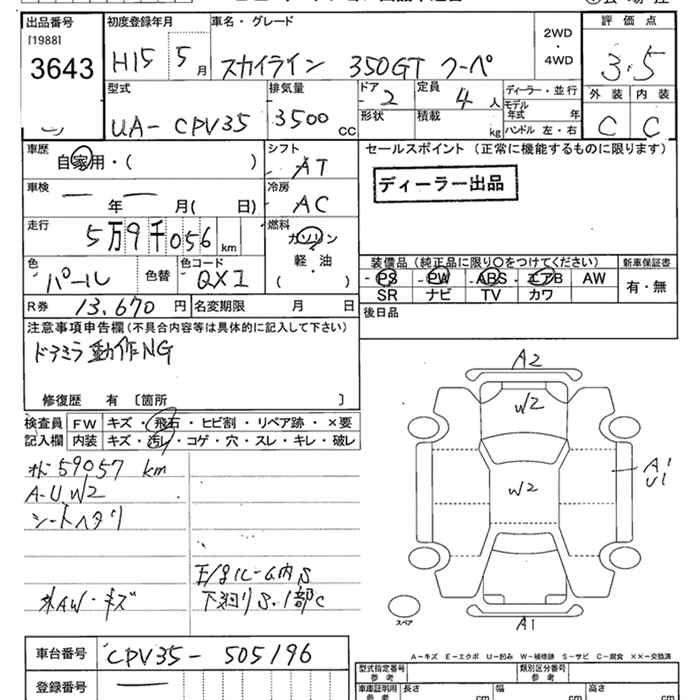 出品番号 初度登録年月 車名・グレード 評価点
[1988]
3643 H15 5月 スカイライン 350GT クーペ 2WD・4WD 3.5
型式 排気量 ドア 定員 ディーラー・並行 外装 内装
UA-CPV35 3500cc 2 4人 モデル年式 年 C C
形状 積載 kg ハンドル 左・右
車歴 シフト セールスポイント(正常に機能するものに限ります)
自家用・( ) AT
ディーラー出品
車検 冷房
年 月( 日) AC
走行 燃料
5万9千056km ガソリン
軽・油
( )
装備品(純正品に限り○をつけてください) 新車保証書
色 色替 色コード PS PW ABS エアB AW 有・無
パール QX1 SR ナビ TV カワ
R券 13,670円 名変期限 月 日 後日品
注意事項申告欄(不具合内容等は具体的に記入して下さい)
ドアミラ動作NG
修復歴 有 〔箇所 〕
検査員 FW キズ・飛石・ヒビ割・リペア跡・×要
記入欄 内装 キズ・汚レ・コゲ・穴・スレ・キレ・破レ
59057 km
A-U.W2
シートヘタリ
外AW・キズ
下廻りS.1部C
A2
W2
W2
A1
U1
スペア
A1
A-キズ E-エクボ U-凹み W-補修跡 S-サビ C-腐食 ××-交換済
車台番号 CPV35-505196
登録番号
型式指定番号 参考 類別区分番号 参考
車庫証明用 参考 長さ cm 幅 cm 高さ cm